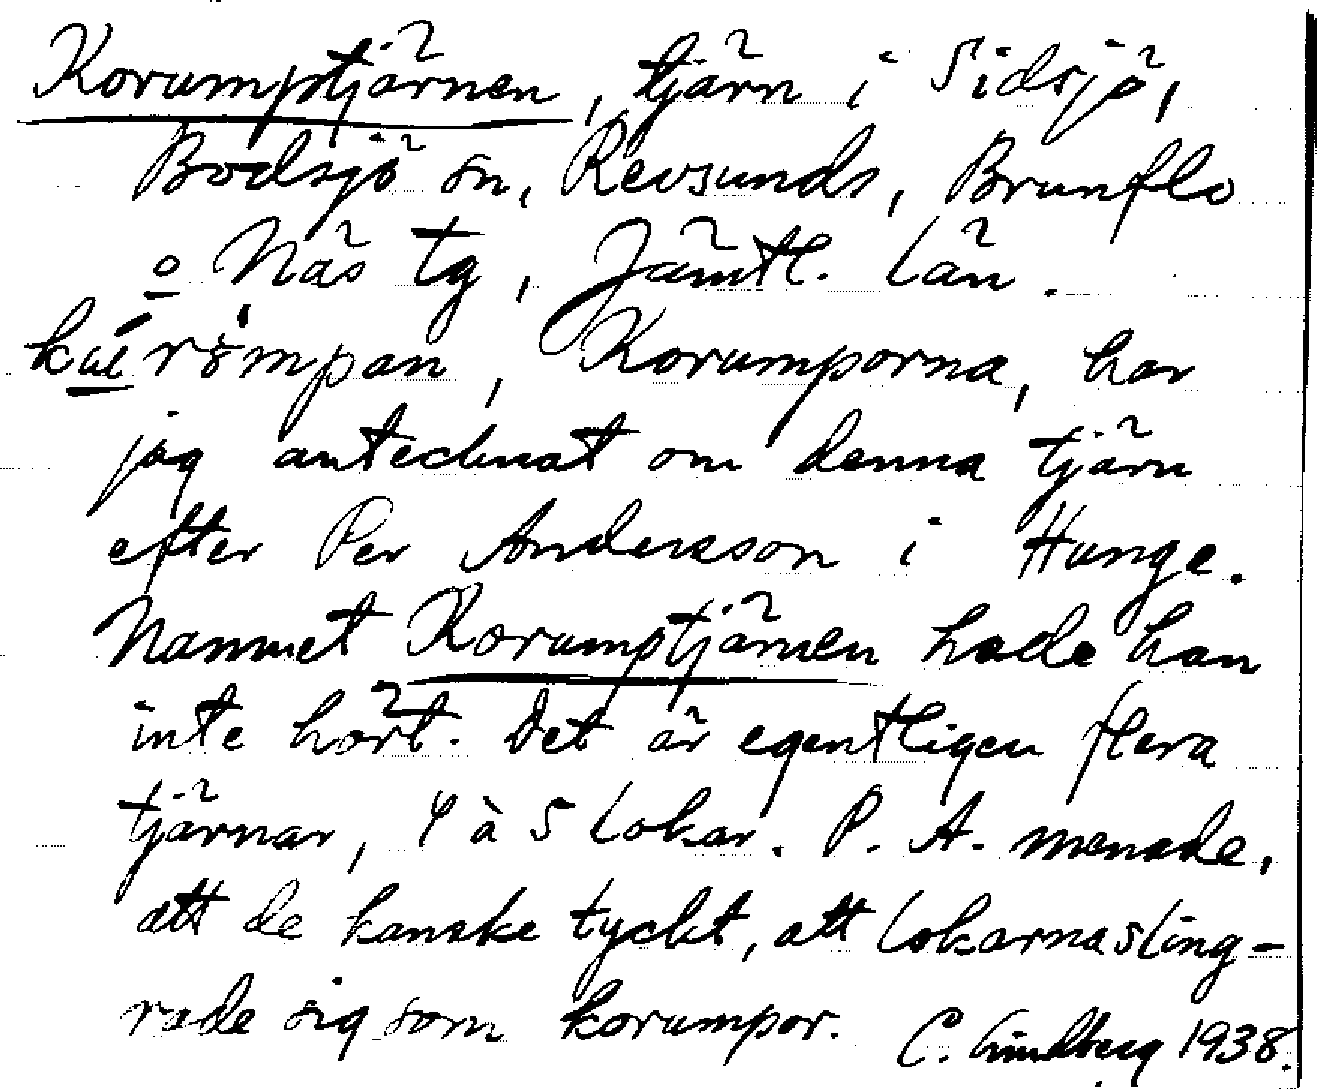 Korumptjärnen, tjärn i Sidsjö,
Bodsjö sn, Revsunds, Brunflo
o Näs tg, Jämtl. län.
rømpan, Korumporna, har
jag antecknat om denna tjärn
efter Per Andersson i Hunge.
Namnet Korumptjärnen hade han
inte hört. Det är egentligen flera
tjärnar, 4 à 5 lokar. P. A. menade,
att de kanske tyckt, att lokarna sling-
rade sig som korumpor. C. Lindberg 1938.